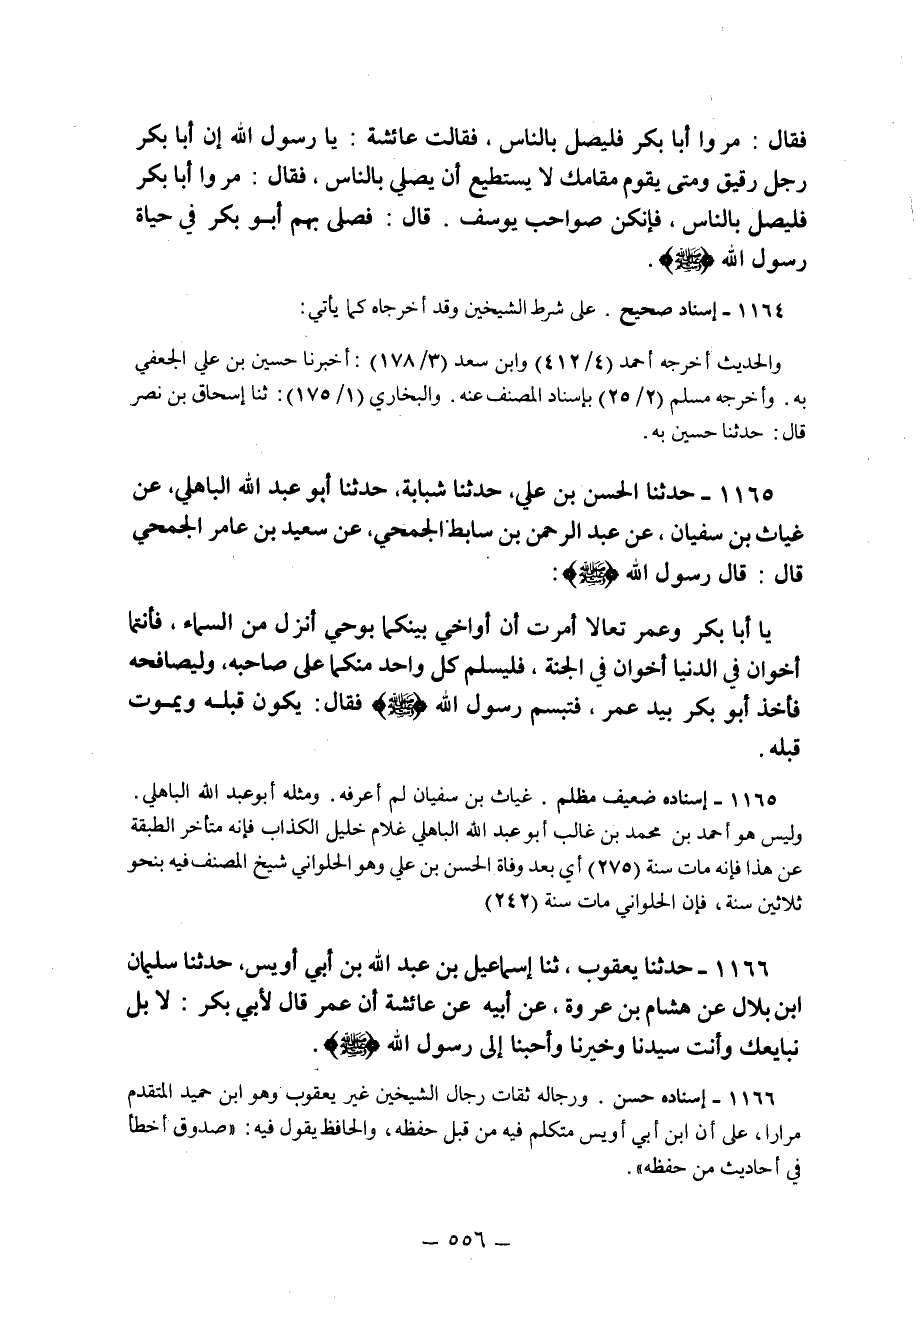 فقال : مروا أبا بكر فليصل بالناس ، فقالت عائشة : يا رسول الله إن أبا بكر
رجل رقيق ومتى يقوم مقامك لا يستطيع أن يصلي بالناس ، فقال : مروا أبا بكر
فليصل بالناس ، فإنكن صواحب يوسف . قال : فصلى بهم أبو بكر في حياة
رسول الله ﴿ﷺ﴾ .
١١٦٤ - إسناد صحيح . على شرط الشيخين وقد أخرجاه كما يأتي :
والحديث أخرجه أحمد (٤/ ٤١٢) وابن سعد (٣/ ١٧٨) : أخبرنا حسين بن علي الجعفي
به . وأخرجه مسلم (٢/ ٢٥) بإسناد المصنف عنه . والبخاري (١/ ١٧٥) : ثنا إسحاق بن نصر
قال : حدثنا حسين به .
١١٦٥ - حدثنا الحسن بن علي، حدثنا شبابة، حدثنا أبو عبد الله الباهلي، عن
غياث بن سفيان ، عن عبد الرحمن بن سابط الجمحي، عن سعيد بن عامر الجمحي
قال : قال رسول الله ﴿ﷺ﴾ :
يا أبا بكر وعمر تعالا أمرت أن أواخي بينكما بوحي أنزل من السماء ، فأنتما
أخوان في الدنيا أخوان في الجنة ، فليسلم كل واحد منكما على صاحبه، وليصافحه
فأخذ أبو بكر بيد عمر ، فتبسم رسول الله ﴿ﷺ﴾ فقال : يكون قبله ويموت
قبله .
١١٦٥ - إسناده ضعيف مظلم . غياث بن سفيان لم أعرفه . ومثله أبو عبد الله الباهلي .
وليس هو أحمد بن محمد بن غالب أبو عبد الله الباهلي غلام خليل الكذاب فإنه متأخر الطبقة
عن هذا فإنه مات سنة (٢٧٥) أي بعد وفاة الحسن بن علي وهو الحلواني شيخ المصنف فيه بنحو
ثلاثين سنة ، فإن الحلواني مات سنة (٢٤٢)
١١٦٦ - حدثنا يعقوب ، ثنا إسماعيل بن عبد الله بن أبي أويس، حدثنا سليمان
ابن بلال عن هشام بن عروة ، عن أبيه عن عائشة أن عمر قال لأبي بكر : لا بل
نبايعك وأنت سيدنا وخيرنا وأحبنا إلى رسول الله ﴿ﷺ﴾ .
١١٦٦ - إسناده حسن . ورجاله ثقات رجال الشيخين غير يعقوب وهو ابن حميد المتقدم
مرارا ، على أن ابن أبي أويس متكلم فيه من قبل حفظه ، والحافظ يقول فيه : «صدوق أخطأ
في أحاديث من حفظه» .
— ٥٥٦ —